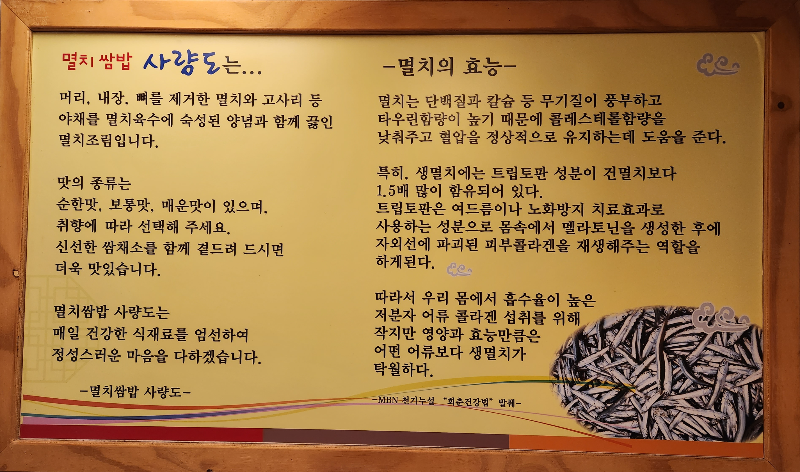 멸치 쌈밥 사량도는...
머리, 내장, 뼈를 제거한 멸치와 고사리 등
야채를 멸치육수에 숙성된 양념과 함께 끓인
멸치조림입니다.
맛의 종류는
순한맛, 보통맛, 매운맛이 있으며,
취향에 따라 선택해 주세요.
신선한 쌈채소를 함께 곁드려 드시면
더욱 맛있습니다.
멸치쌈밥 사량도는
매일 건강한 식재료를 엄선하여
정성스러운 마음을 다하겠습니다.
-멸치쌈밥 사량도-
-멸치의 효능-
멸치는 단백질과 칼슘 등 무기질이 풍부하고
타우린함량이 높기 때문에 콜레스테롤함량을
낮춰주고 혈압을 정상적으로 유지하는데 도움을 준다.
특히, 생멸치에는 트립토판 성분이 건멸치보다
1.5배 많이 함유되어 있다.
트립토판은 여드름이나 노화방지 치료효과로
사용하는 성분으로 몸속에서 멜라토닌을 생성한 후에
자외선에 파괴된 피부콜라겐을 재생해주는 역할을
하게된다.
따라서 우리 몸에서 흡수율이 높은
저분자 어류 콜라겐 섭취를 위해
작지만 영양과 효능만큼은
어떤 어류보다 생멸치가
탁월하다.
-MBN 천기누설 "회춘건강법" 발췌-